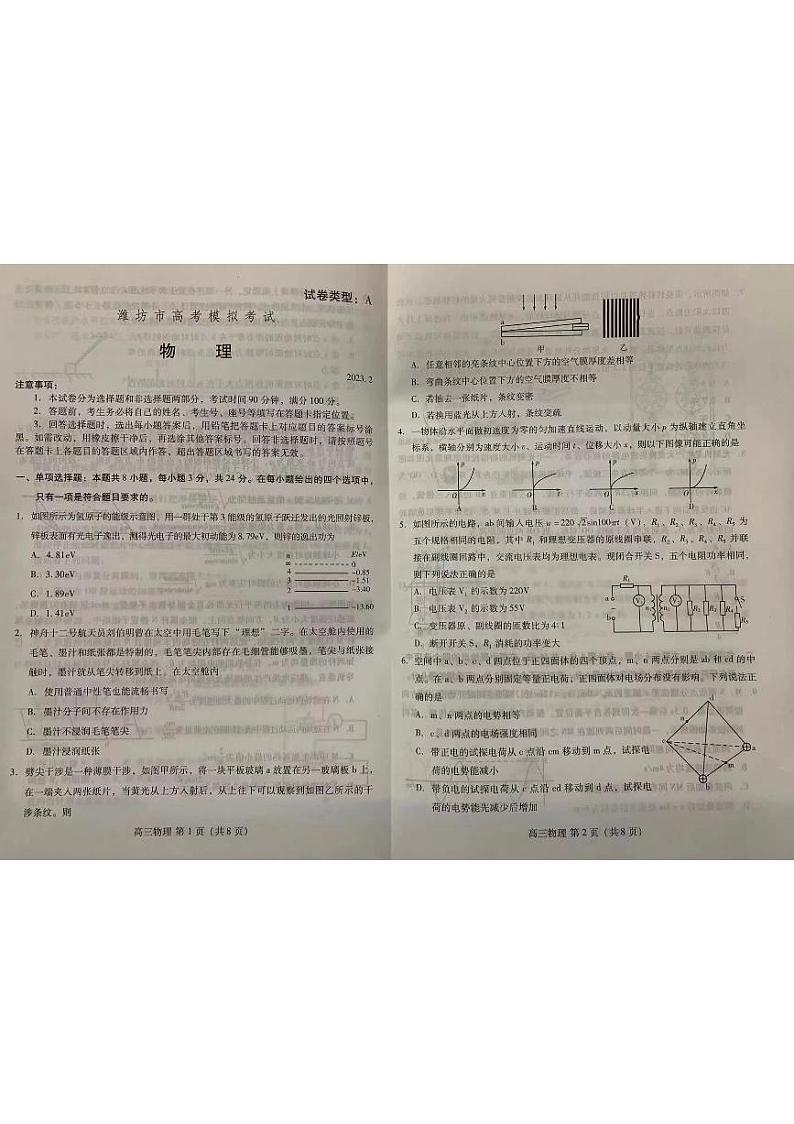 试卷类型：A
潍坊市高考模拟考试
物 理
2023.2
注意事项：
1. 本试卷分为选择题和非选择题两部分，考试时间90分钟，满分100分。
2. 答题前，考生务必将自己的姓名、考生号、座号等填写在答题卡指定位置。
3. 回答选择题时，选出每小题答案后，用铅笔把答题卡上对应题目的答案标号涂
黑。如需改动，用橡皮擦干净后，再选涂其他答案标号。回答非选择题时，请按照题号
在答题卡上各题目的答题区域内作答，超出答题区域书写的答案无效。
一、单项选择题：本题共8小题，每小题3分，共24分。在每小题给出的四个选项中，
只有一项是符合题目要求的。
1. 如图所示为氢原子的能级示意图，用一群处于第3能级的氢原子跃迁发出的光照射锌板，
锌板表面有光电子逸出，测得光电子的最大初动能为8.79eV，则锌的逸出功为
A. 4.81eV
B. 3.30eV
C. 1.89eV
D. 1.41eV
n E/eV
∞ 0
4 -0.85
3 -1.51
2 -3.40
1 -13.60
2. 神舟十二号航天员刘伯明曾在太空中用毛笔写下“理想”二字。在太空舱内使用的
毛笔、墨汁和纸张都是特制的，毛笔笔尖内部存在毛细管能够吸墨，笔尖与纸张接
触时，墨汁就从笔尖转移到纸上。在太空舱内
A. 使用普通中性笔也能流畅书写
B. 墨汁分子间不存在作用力
C. 墨汁不浸润毛笔笔尖
D. 墨汁浸润纸张
3. 劈尖干涉是一种薄膜干涉，如图甲所示，将一块平板玻璃a放置在另一玻璃板b上，
在一端夹入两张纸片，当黄光从上方入射后，从上往下可以观察到如图乙所示的干
涉条纹。则
高三物理 第1页（共8页）
a
b
甲 乙
A. 任意相邻的亮条纹中心位置下方的空气膜厚度差相等
B. 弯曲条纹中心位置下方的空气膜厚度不相等
C. 若抽去一张纸片，条纹变密
D. 若换用蓝光从上方入射，条纹变疏
4. 一物体沿水平面做初速度为零的匀加速直线运动，以动量大小p为纵轴建立直角坐
标系，横轴分别为速度大小v、运动时间t、位移大小x，则以下图像可能正确的是
p p p p
O v O t O x O x
A B C D
5. 如图所示的电路，ab间输入电压u=220√2sin100πt（V），R₁、R₂、R₃、R₄、R₅为
五个规格相同的电阻，其中R₁和理想变压器的原线圈串联，R₂、R₃、R₄、R₅并联
接在副线圈回路中，交流电压表均为理想电表。现闭合开关S，五个电阻功率相同，
则下列说法正确的是
A. 电压表V₁的示数为220V
B. 电压表V₂的示数为55V
C. 变压器原、副线圈的匝数比为4∶1
D. 断开开关S，R₁消耗的功率变大
R₁
a
b
V₁ n₁ n₂ V₂ R₂ R₃ R₄ S
R₅
6. 空间中a、b、c、d四点位于正四面体的四个顶点，m、n两点分别是ab和cd的中
点。在a、b两点分别固定等量正电荷，正四面体对电场分布没有影响。下列说法正
确的是
A. m、n两点的电势相等
B. c、d两点的电场强度相同
C. 带正电的试探电荷从c点沿cm移动到m点，试探电
荷的电势能减小
D. 带负电的试探电荷从c点沿cd移动到d点，试探电
荷的电势能先减少后增加
d
n
c
a
m
b
高三物理 第2页（共8页）